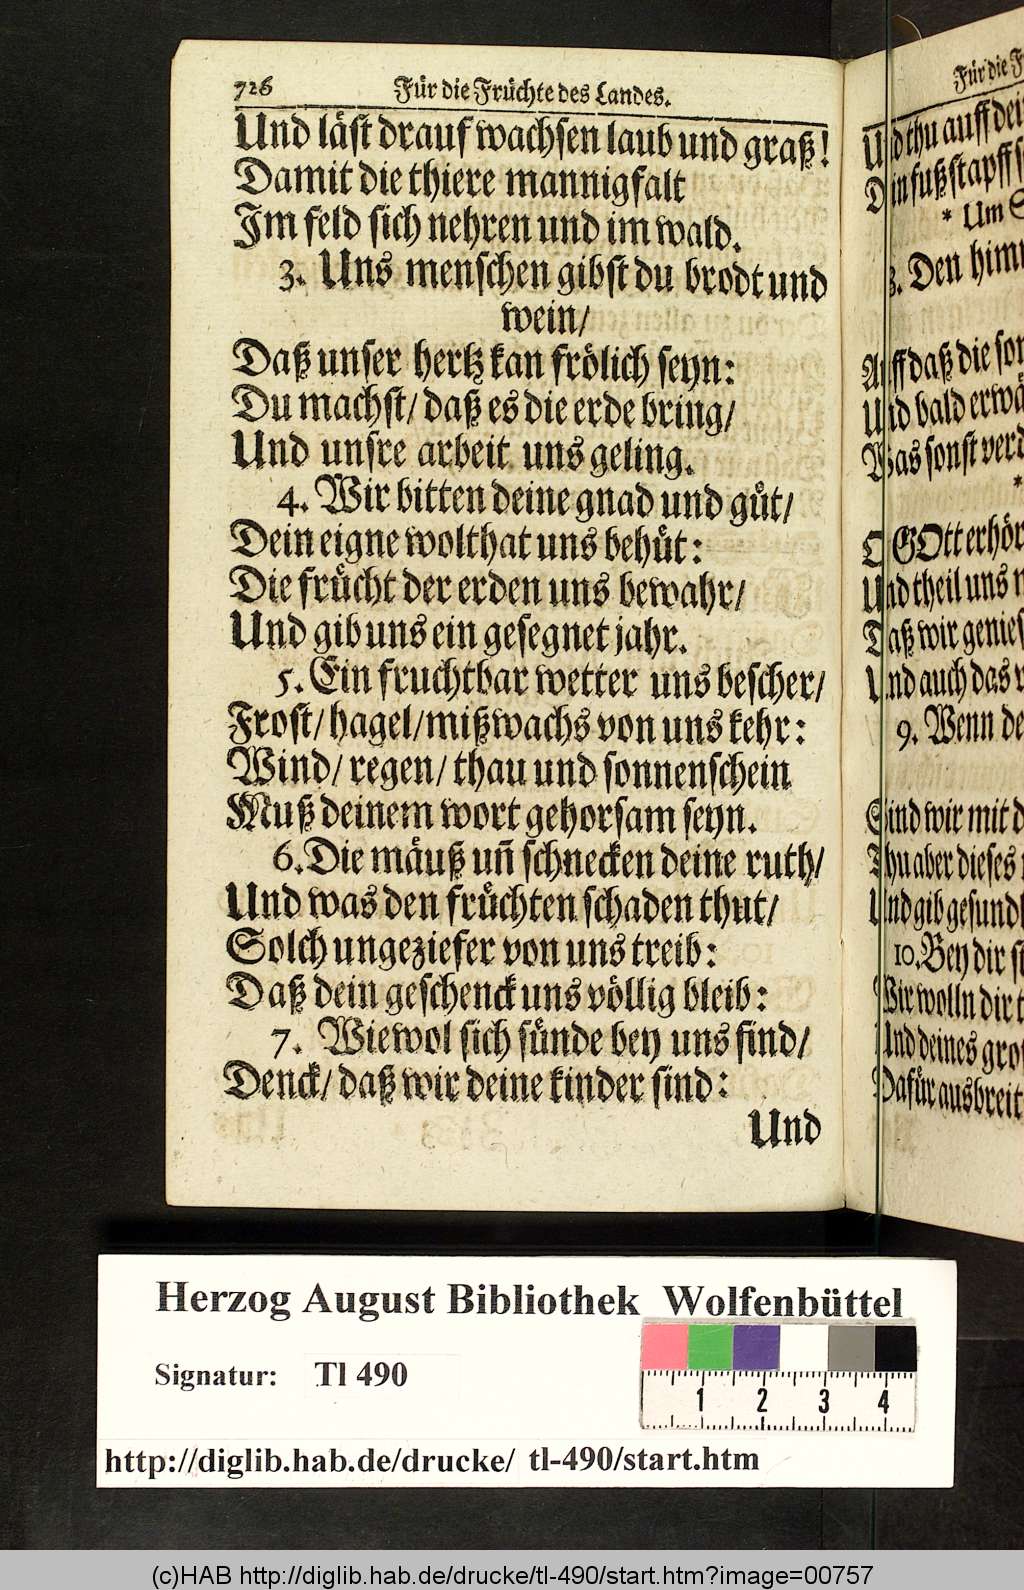 726 Für die Früchte des Landes.
Und läst drauf wachsen laub und graß!
Damit die thiere mannigfalt
Im feld sich nehren und im wald.
3. Uns menschen gibst du brodt und
wein/
Daß unser hertz kan frölich seyn:
Du machst/ daß es die erde bring/
Und unsre arbeit uns geling.
4. Wir bitten deine gnad und güt/
Dein eigne wolthat uns behüt:
Die frücht der erden uns bewahr/
Und gib uns ein gesegnet jahr.
5. Ein fruchtbar wetter uns bescher/
Frost/ hagel/ mißwachs von uns kehr:
Wind/ regen/ thau und sonnenschein
Muß deinem wort gehorsam seyn.
6. Die mäuß uñ schnecken deine ruth/
Und was den früchten schaden thut/
Solch ungeziefer von uns treib:
Daß dein geschenck uns völlig bleib:
7. Wiewol sich sünde bey uns find/
Denck/ daß wir deine kinder sind:
Und
Für die
Und thu auff
Dein fußstapff
* Um
8. Den
Auff daß die
Und bald
Was sonst
*
O GOtt
Und theil uns
Daß wir
Und auch das
9. Wenn
Sind wir mit
Thu aber dieses
Und gib
10. Bey dir
Wir wolln dir
Und deines
Dafür
Herzog August Bibliothek Wolfenbüttel
Signatur: Tl 490
1 2 3 4
http://diglib.hab.de/drucke/ tl-490/start.htm
(c)HAB http://diglib.hab.de/drucke/tl-490/start.htm?image=00757